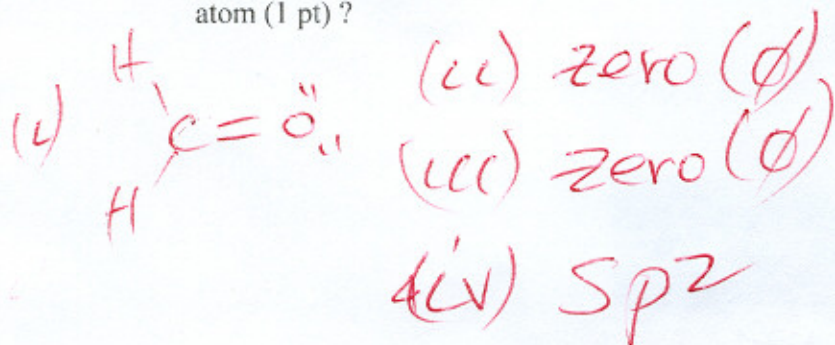 atom (1 pt) ?
(i) H
C = O
H
(ii) zero (ϕ)
(iii) zero (ϕ)
(iv) sp2